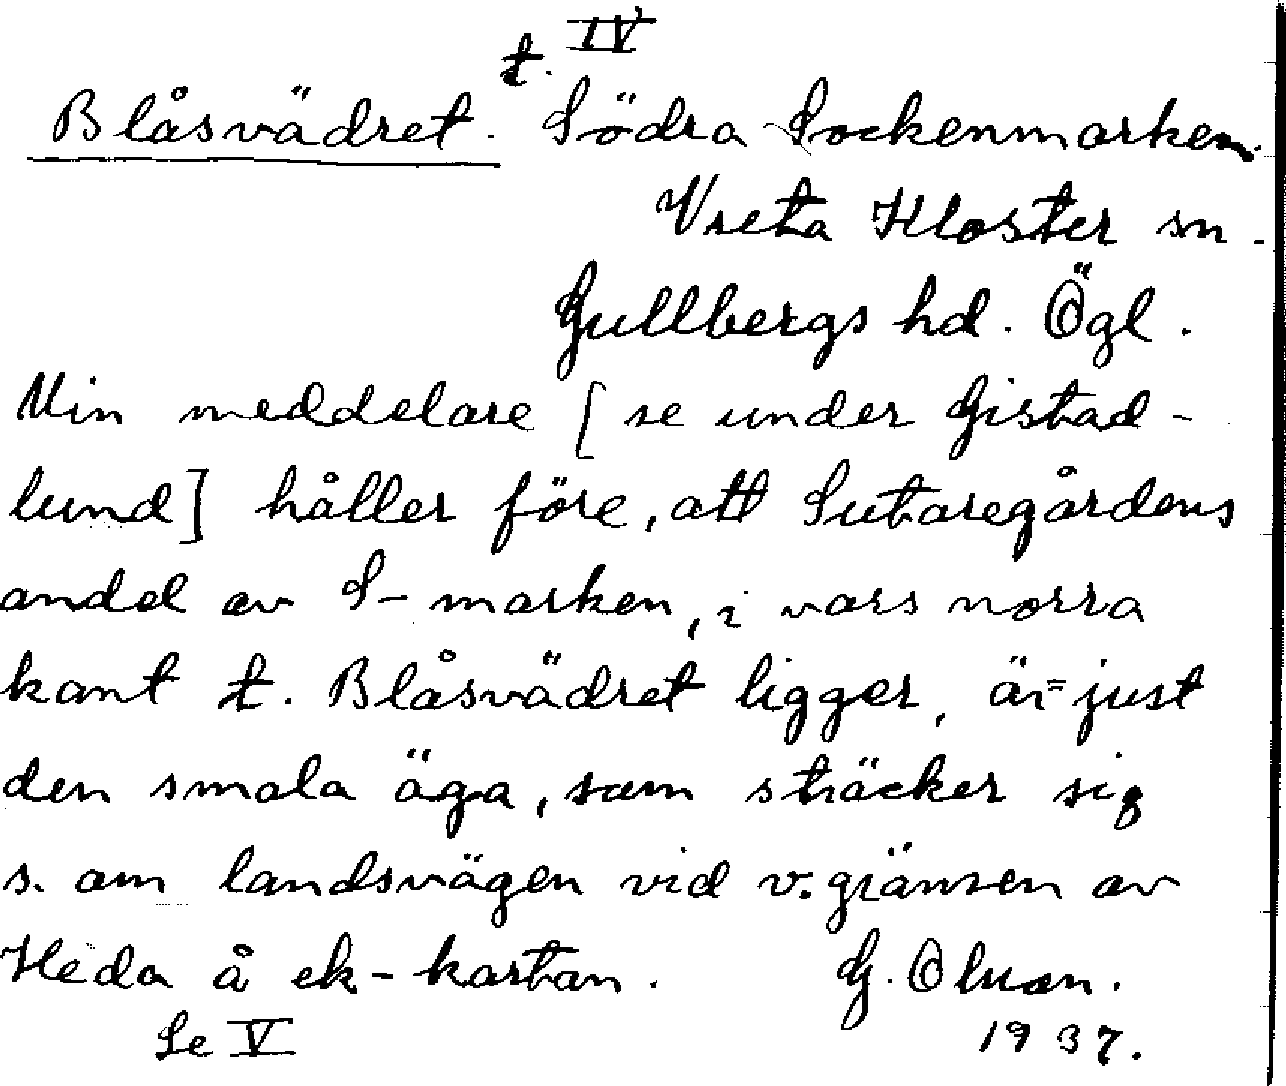 t. IV
Blåsvädret. Södra Sockenmarken.
Vreta Kloster sn.
Gullbergs hd. Ögl.
Min meddelare [se under Gistad-
lund] håller före, att Sutaregårdens
andel av S-marken, i vars norra
kant t. Blåsvädret ligger, är just
den smala äga, som sträcker sig
s. om landsvägen vid v. gränsen av
Heda å ek-kartan. G. Olson.
Se V 1937.